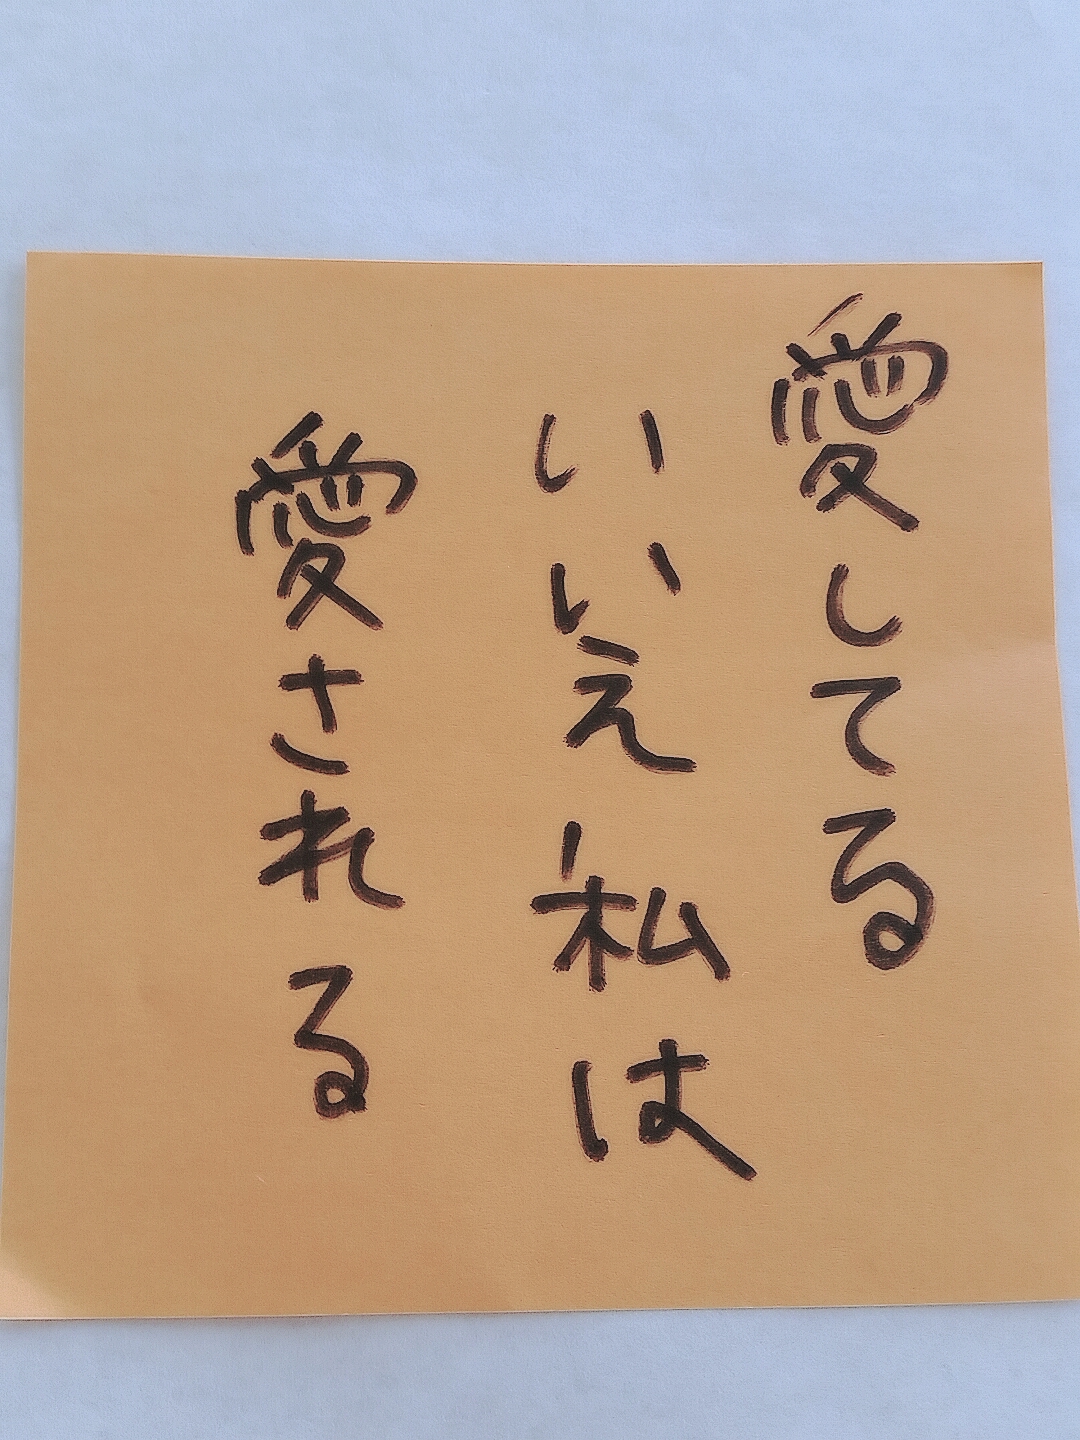 愛してる
いいえ私は
愛される